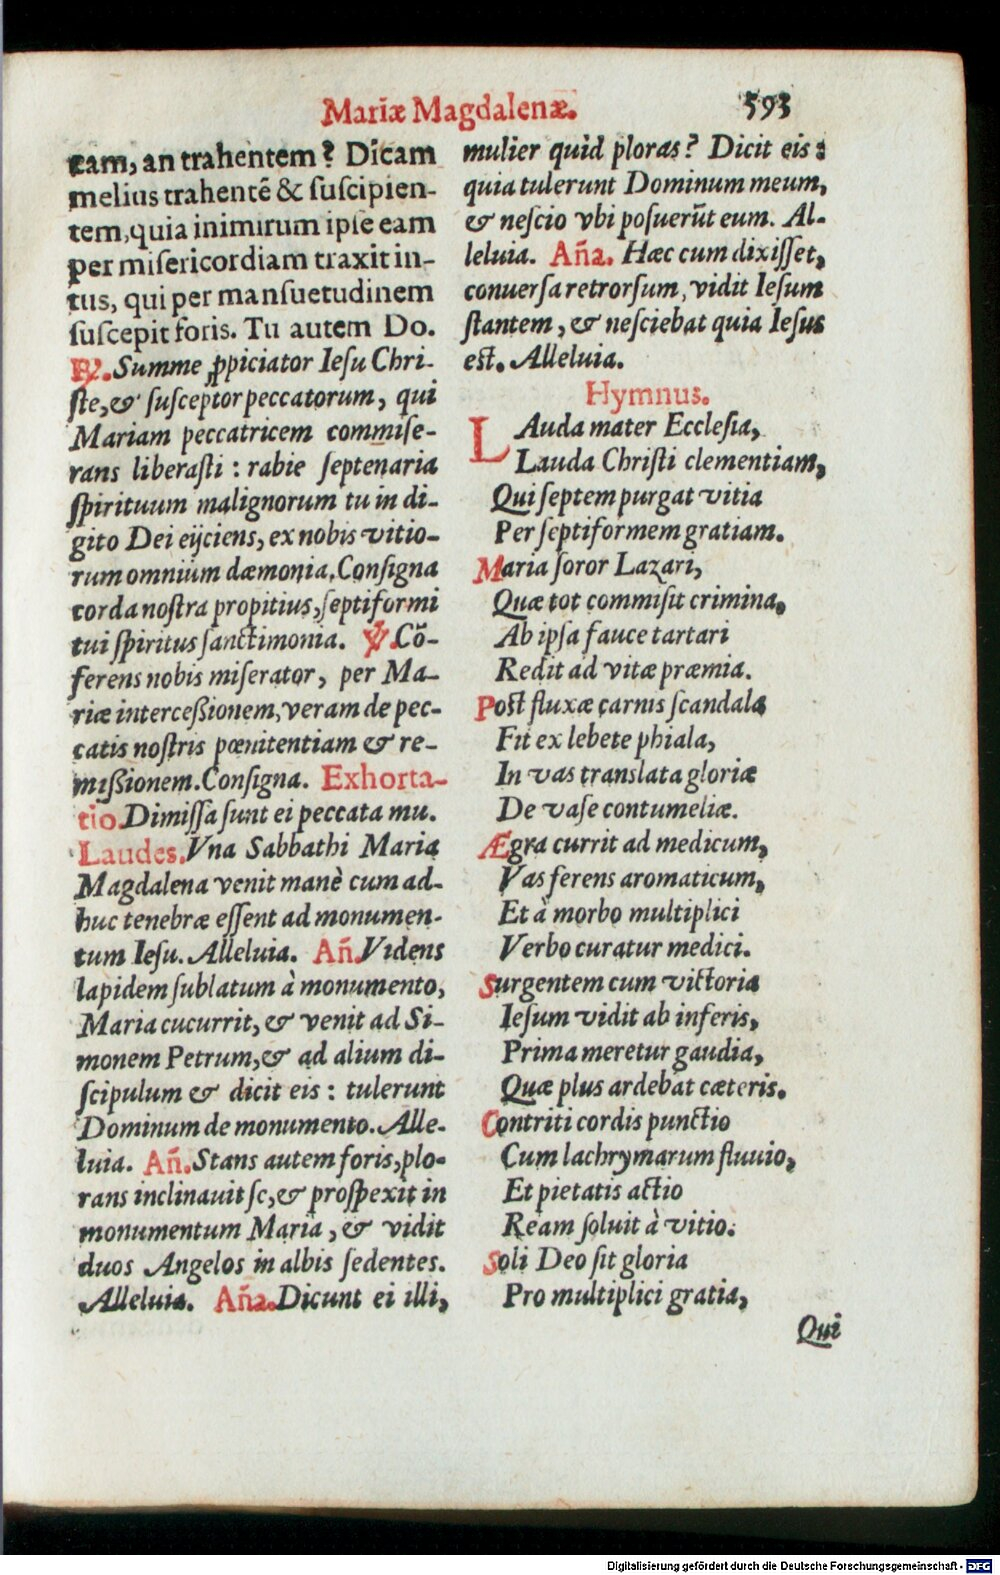 Mariæ Magdalenæ. 593
eam, an trahentem? Dicam
melius trahentē & ſuſcipien-
tem, quia inimirum ipſe eam
per miſericordiam traxit in-
tus, qui per manſuetudinem
ſuſcepit foris. Tu autem Do.
℟. Summe ꝓpiciator Ieſu Chri-
ſte, & ſuſceptor peccatorum, qui
Mariam peccatricem commiſe-
rans liberaſti : rabie ſeptenaria
ſpirituum malignorum tu in di-
gito Dei eijciens, ex nobis vitio-
rum omnium dæmonia. Conſigna
corda noſtra propitius, ſeptiformi
tui ſpiritus ſanctimonia. ℣. Cō-
ferens nobis miſerator, per Ma-
riæ interceßionem, veram de pec-
catis noſtris pœnitentiam & re-
mißionem. Conſigna. Exhorta-
tio. Dimiſſa ſunt ei peccata mu.
Laudes. Vna Sabbathi Maria
Magdalena venit manè cum ad-
huc tenebræ eſſent ad monumen-
tum Ieſu. Alleluia. Añ. Videns
lapidem ſublatum à monumento,
Maria cucurrit, & venit ad Si-
monem Petrum, & ad alium di-
ſcipulum & dicit eis : tulerunt
Dominum de monumento. Alle-
luia. Añ. Stans autem foris, plo-
rans inclinauit ſe, & proſpexit in
monumentum Maria, & vidit
duos Angelos in albis ſedentes.
Alleluia. Aña. Dicunt ei illi,
mulier quid ploras? Dicit eis :
quia tulerunt Dominum meum,
& neſcio vbi poſuerūt eum. Al-
leluia. Aña. Hæc cum dixiſſet,
conuerſa retrorſum, vidit Ieſum
ſtantem, & neſciebat quia Ieſus
eſt. Alleluia.
Hymnus.
LAuda mater Eccleſia,
Lauda Chriſti clementiam,
Qui ſeptem purgat vitia
Per ſeptiformem gratiam.
Maria ſoror Lazari,
Quæ tot commiſit crimina,
Ab ipſa fauce tartari
Redit ad vitæ præmia.
Poſt fluxæ carnis ſcandala
Fit ex lebete phiala,
In vas translata gloriæ
De vaſe contumeliæ.
Ægra currit ad medicum,
Vas ferens aromaticum,
Et à morbo multiplici
Verbo curatur medici.
Surgentem cum victoria
Ieſum vidit ab inferis,
Prima meretur gaudia,
Quæ plus ardebat cæteris.
Contriti cordis punctio
Cum lachrymarum fluuio,
Et pietatis actio
Ream ſoluit à vitio.
Soli Deo ſit gloria
Pro multiplici gratia,
Qui
Digitalisierung gefördert durch die Deutsche Forschungsgemeinschaft - DFG